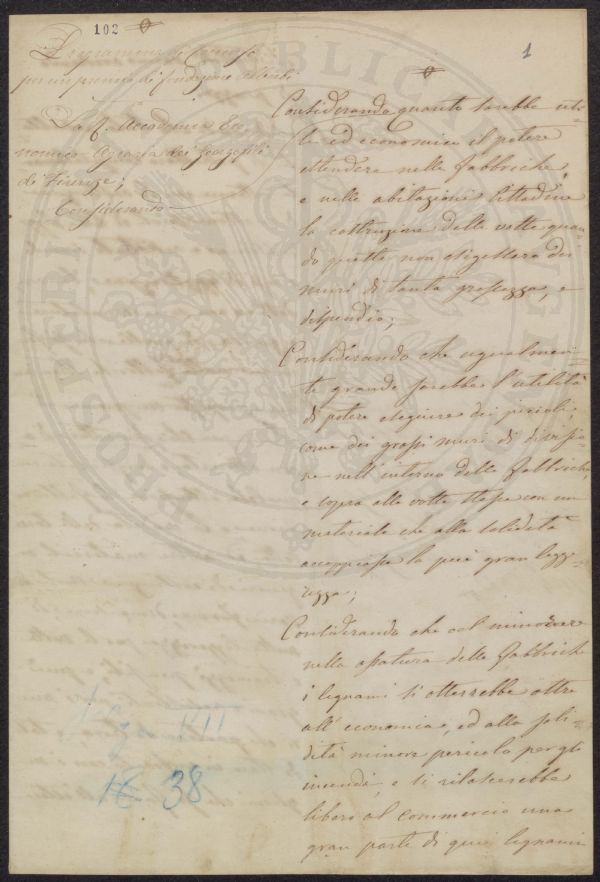 102
1
per un premio di
La R. Accademia Eco-
nomico-Agraria dei Georgofili
di Firenze;
Considerando
Considerando quanto sarebbe uti-
le ed economico il potere
estendere nelle fabbriche,
e nelle abitazioni Cittadine
la costruzione delle volte quan-
do queste non esigessero dei
muri di tanta grossezza, e
dispendio;
Considerando che ugualmen-
te grande sarebbe l'utilità
di potere eseguire dei piccoli,
come dei grossi muri di divisio-
ne nell'interno delle fabbriche,
e sopra alle volte stesse con un
materiale che alla solidità
accoppiasse la più gran legge-
rezza;
Considerando che col minorare
nella ossatura delle fabbriche
i legnami si otterrebbe oltre
all'economia, ed alla soli-
dità minore pericolo per gli
incendi, e si rilascerebbe
libero al commercio una
gran parte di quei legnami
38
PROSPERITATI PUBLICAE AUGENDAE